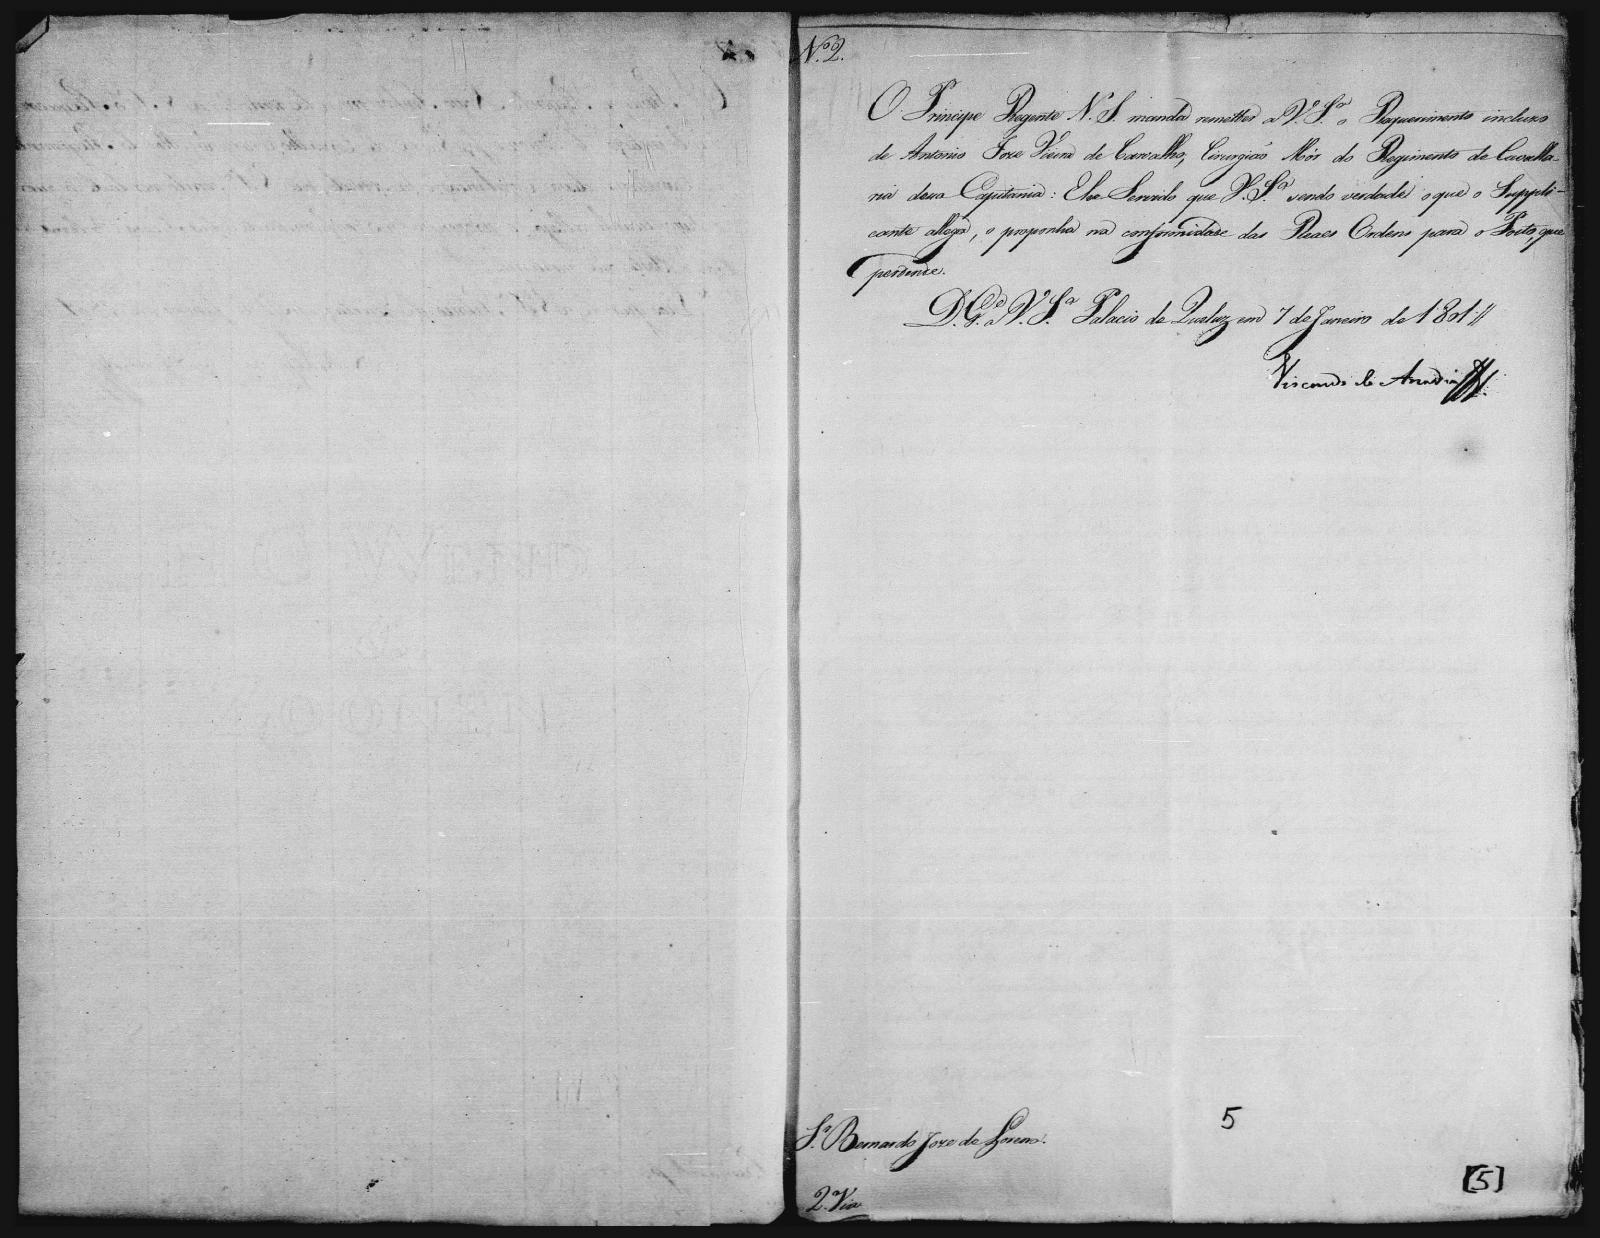 N.º 2.
O Principe Regente N. S. manda remetter a V. S.ª o Requerimento incluzo
de Antonio Joze Vieira de Carvalho, Cirurgiaõ Mór do Regimento de Cavalla-
ria dessa Capitania: E he Servido que V. S.ª sendo verdade o que o Suppli-
cante allega, o proponha na conformidade das Reaes Ordens para o Posto, que
pertende.
D. G.de a V. S.ª Palacio de Queluz em 7 de Janeiro de 1801 //
Visconde de Anadia
S.r Bernardo Joze de Lorena.
2. Via
5
[5]